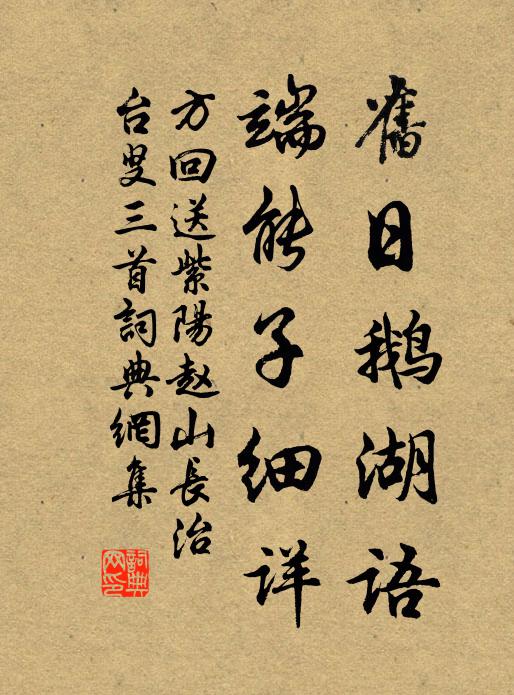 舊日鹅湖语
端能子细详
方回送紫陽赵山長治
台叟三首詞典網集
詞典网印